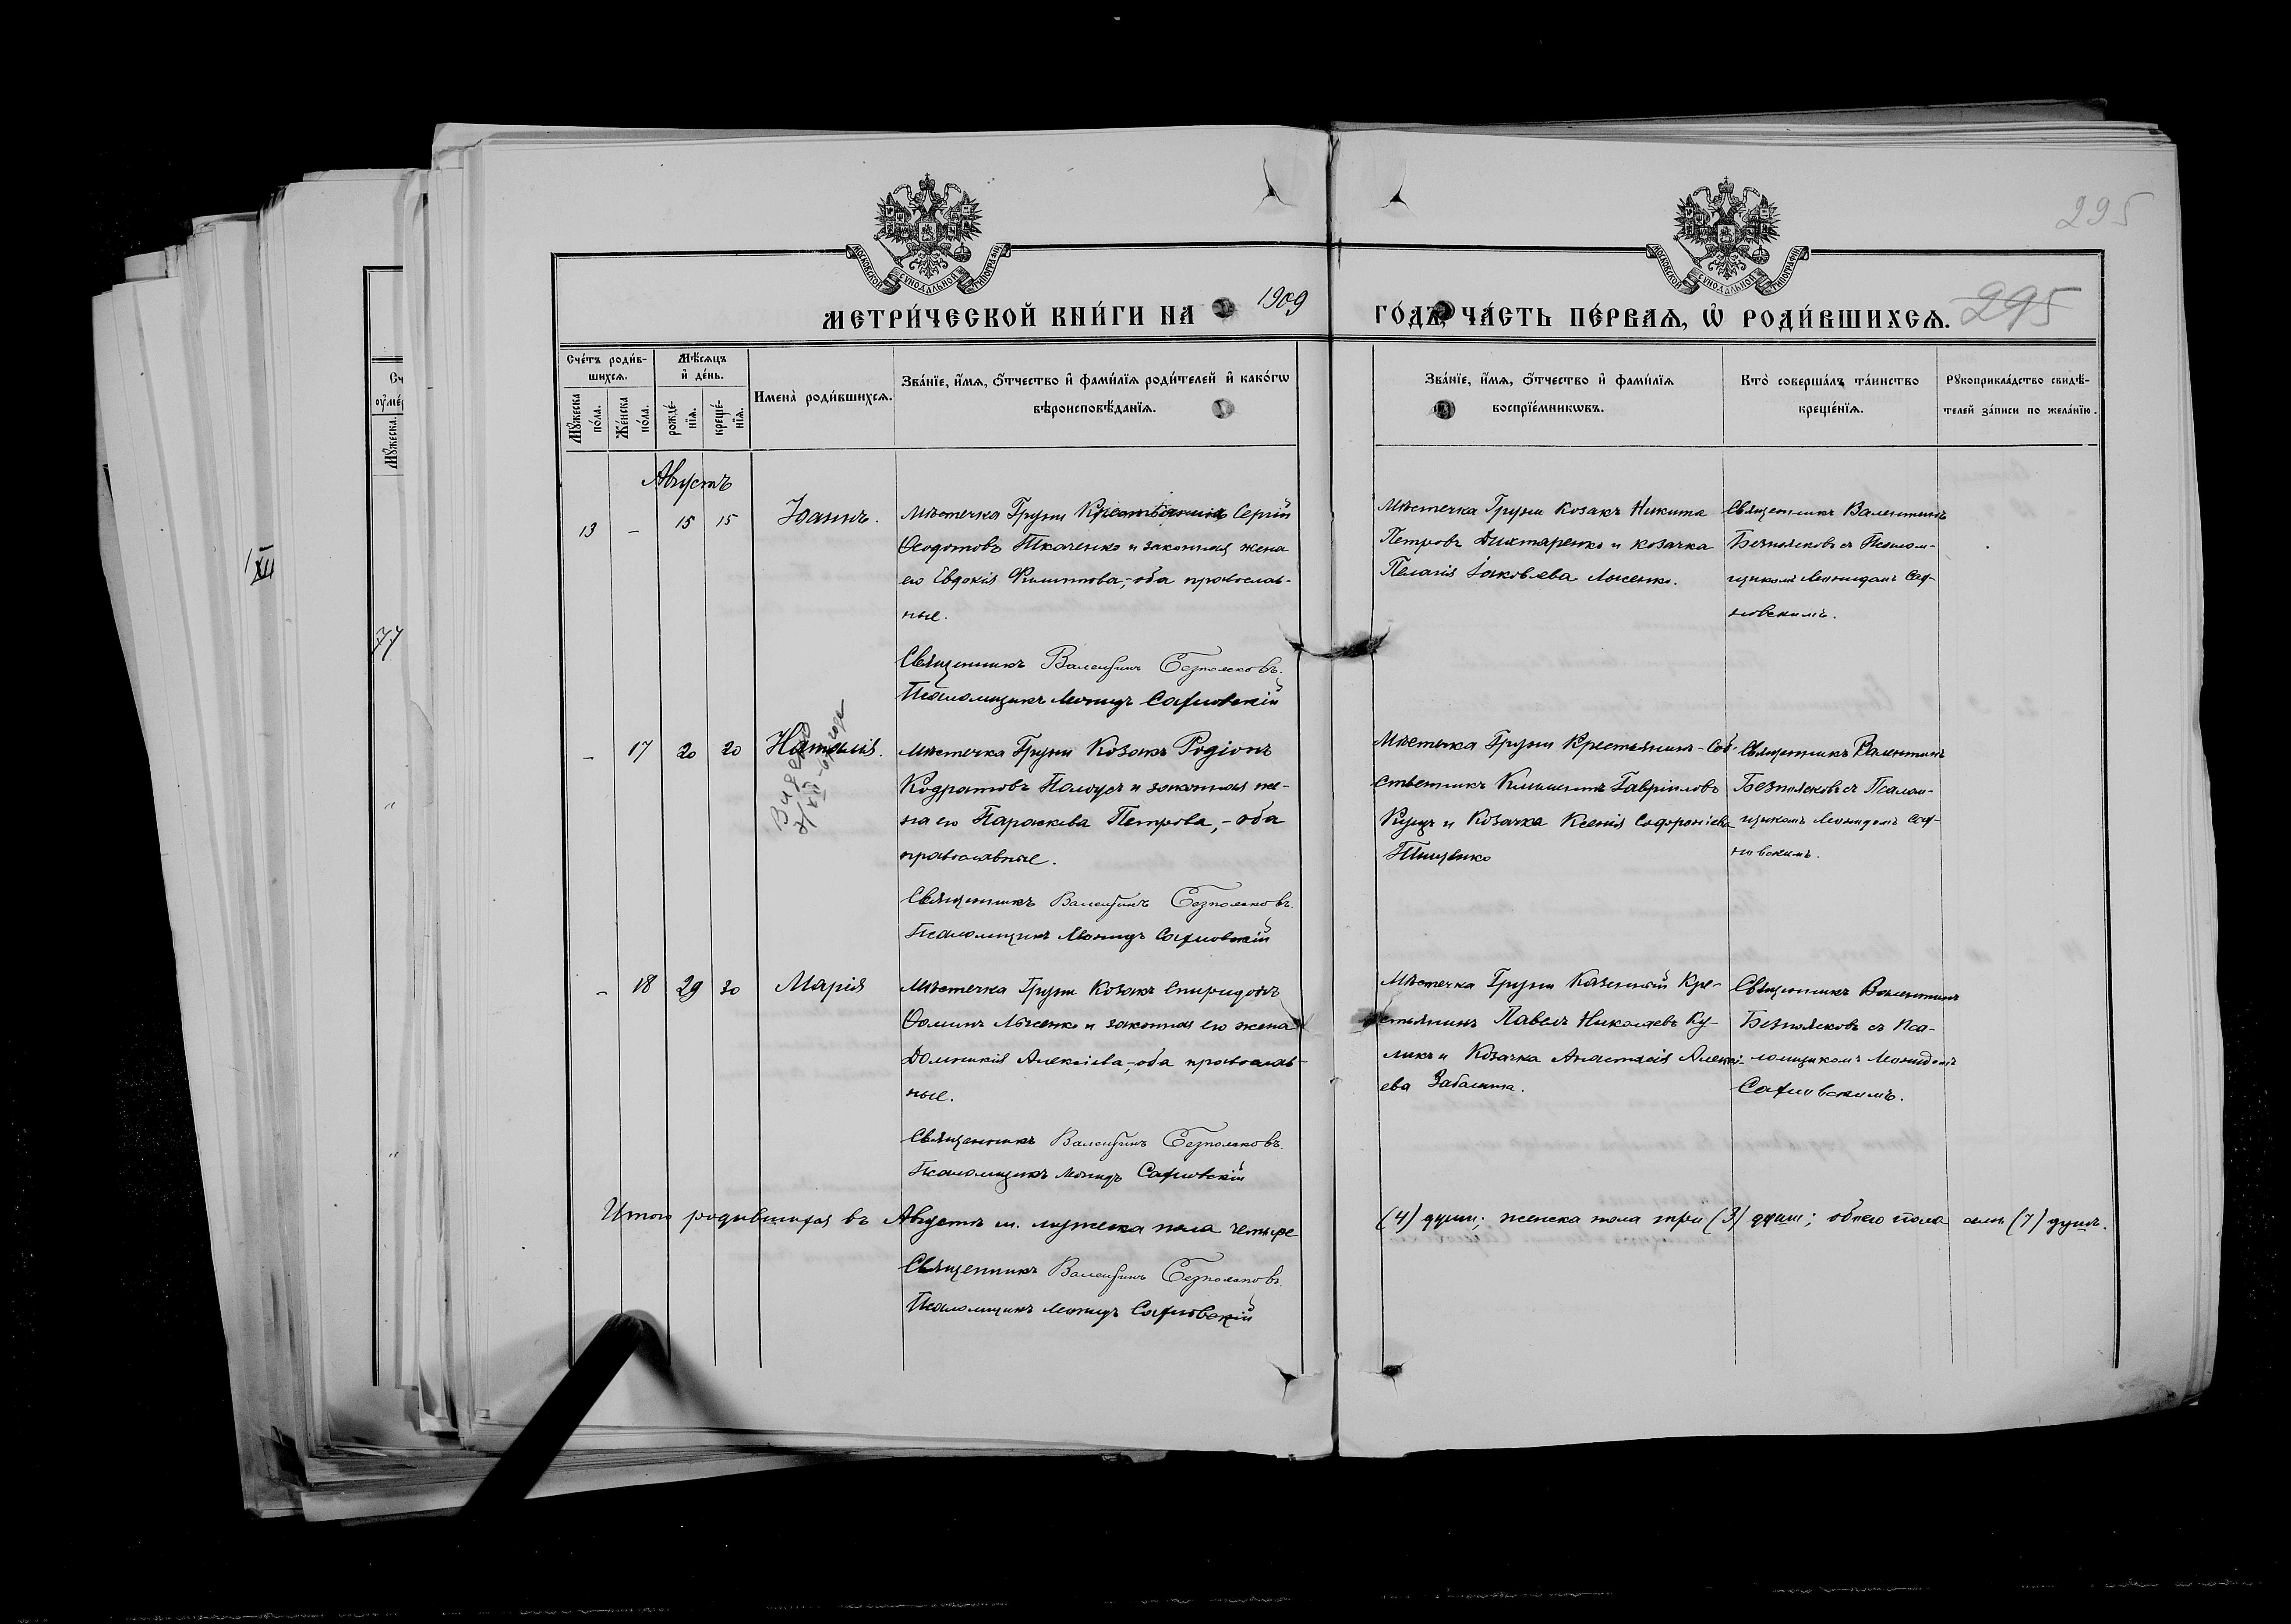 295
МОСКОВСКОЙ СУНОДАЛЬНОЙ ТИПОГРАФІИ
МОСКОВСКОЙ СУНОДАЛЬНОЙ ТИПОГРАФІИ
МЕТРИ́ЧЕСКОЙ КНИ́ГИ НА 1909 ГО́ДЪ, ЧА́СТЬ ПЕ́РВАЯ, Ѡ҆ РОДИ́ВШИХСЯ. 295
Сче́тъ роди́в-
шихсѧ.
Мѣ́сѧцъ
и҆ де́нь.
Мꙋ́жеска
по́ла.
Же́нска
по́ла.
рожде́-
нїѧ.
креще́-
нїѧ.
Имена̀ роди́вшихсѧ.
Зва́нїе, и҆́мѧ, ѻ҆́тчество и҆ фами́лїѧ роди́телей и҆ како́гѡ
вѣроисповѣ́данїѧ.
Зва́нїе, и҆́мѧ, ѻ҆́тчество и҆ фами́лїѧ
воспрїе́мникѡвъ.
Кто̀ соверша́лъ та́инство
креще́нїѧ.
Рꙋкоприкла́дство свидѣ́-
телей за́писи по жела́нїю.
Августъ
13 - 15 15 Іоаннъ.
Мѣстечка Груни Крестьянинъ Сергій
Ѳеодотовъ Ткаченко и законная жена
его Евдокія Филиппова,-оба православ-
ные.
Священникъ Валентинъ Безпоясковъ.
Псаломщикъ Леонидъ Сафновскій
Мѣстечка Груни Козакъ Никита
Петровъ Дихтяренко и козачка
Пелагія Іаковлева Лысенко.
Священникъ Валентинъ
Безпоясковъ съ Псалом-
щикомъ Леонидомъ Саф-
новскимъ.
- 17 20 20 Наталія.
Мѣстечка Груни Козакъ Родіонъ
Кодратовъ и законная же-
на его Параскева Петрова,-оба
православные.
Священникъ Валентинъ Безпоясковъ.
Псаломщикъ Леонидъ Сафновскій
Мѣстечка Груни Крестьянинъ-Соб-
ственникъ Климентъ Гавріиловъ
Куцъ и Козачка Ксенія Софроніева
Тищенко
Священникъ Валентинъ
Безпоясковъ съ Псалом-
щикомъ Леонидомъ Саф-
новскимъ.
- 18 29 30 Марія
Мѣстечка Груни Козакъ Спиридонъ
Ѳоминъ Лысенко и законная его жена
Домникія Алексіева,-оба православ-
ные.
Священникъ Валентинъ Безпоясковъ.
Псаломщикъ Леонидъ Сафновскій
Мѣстечка Груни Казенный Кре-
стьянинъ Павелъ Николаевъ Ку-
ликъ и Козачка Анастасія Алексі-
ева Забашта.
Священникъ Валентинъ
Безпоясковъ съ Пса-
ломщикомъ Леонидомъ
Сафновскимъ.
Итого родившихся въ Августѣ м. мужеска пола четыре (4) души; женска пола три (3) души; обоего пола семь (7) душъ.
Священникъ Валентинъ Безпоясковъ.
Псаломщикъ Леонидъ Сафновскій
XII
77